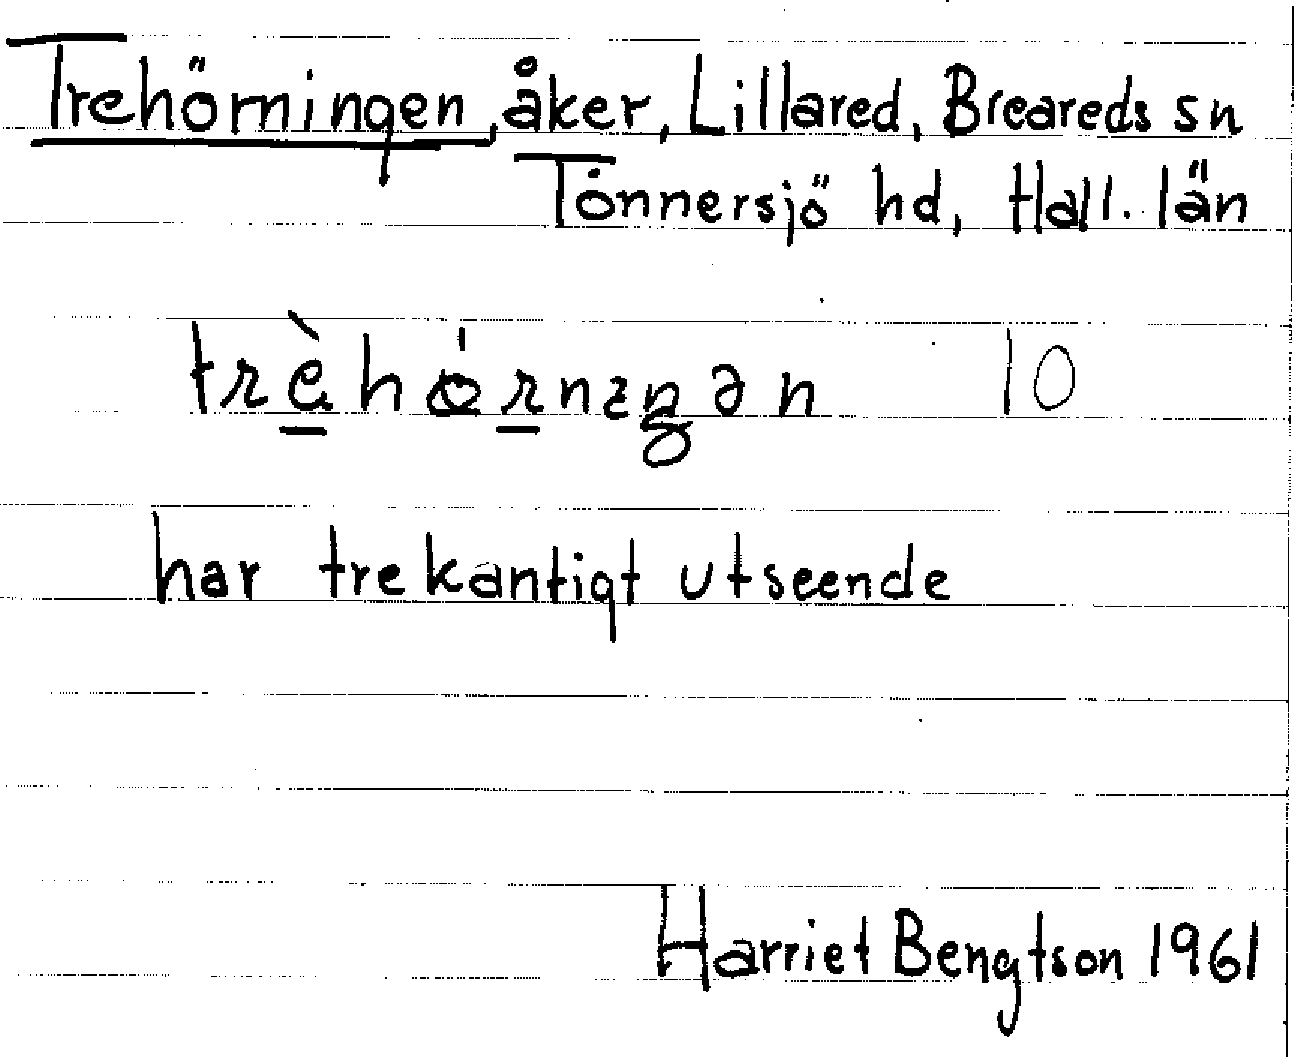 Trehörningen, åker, Lillared, Breareds sn
Tönnersjö hd, Hall. län
trèhǿrnıŋən 10
har trekantigt utseende
Harriet Bengtson 1961